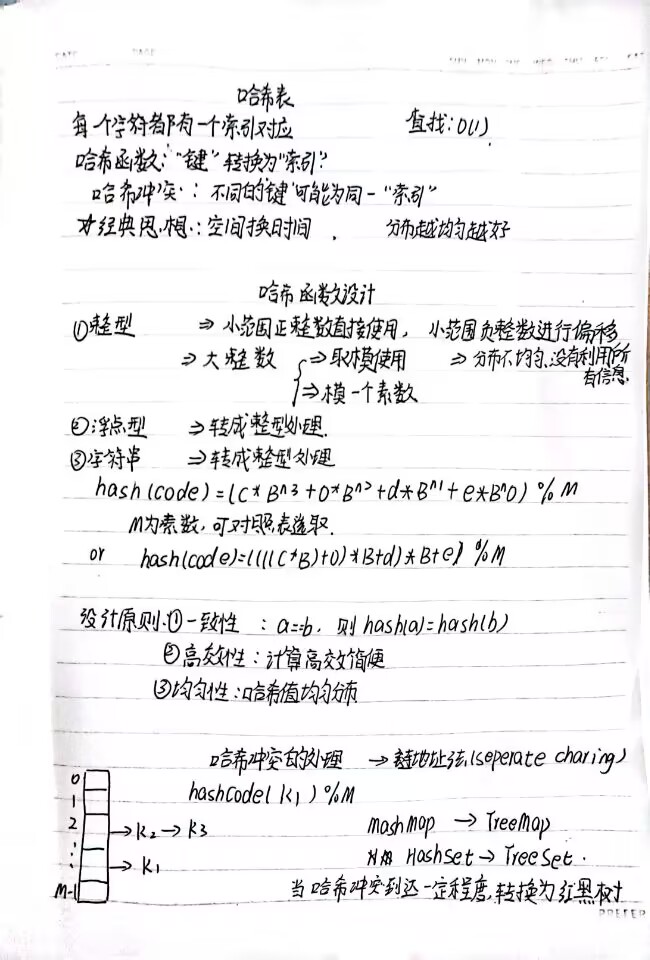 哈希表
每一个字符都有一个索引对应 查找:O(1)
哈希函数:"键"转换为"索引"
哈希冲突:不同的键可能为同一"索引"
☆经典思想:空间换时间. 分布越均匀越好
哈希函数设计
①整型 ⇒ 小范围正整数直接使用, 小范围负整数进行偏移
⇒ 大整数 ⇒取模使用 ⇒ 分布不均匀,没有利用所有信息.
⇒模一个素数
②浮点型 ⇒转成整型处理.
③字符串 ⇒转成整型处理
hash(code)=(C*B^3+O*B^2+d*B^1+e*B^0) % M
M为素数,可对照表选取.
or hash(code)=((((C*B)+O)*B+d)*B+e) %M
设计原则:①一致性 : a==b, 则 hash(a)=hash(b)
②高效性:计算高效简便
③均匀性:哈希值均匀分布
哈希冲突的处理 → 链地址法(seperate charing)
hashCode(K1)%M
0
1
2 → K2 → K3
→ K1
M-1
MashMap → TreeMap
HashSet → TreeSet.
当哈希冲突到达一定程度,转换为红黑树